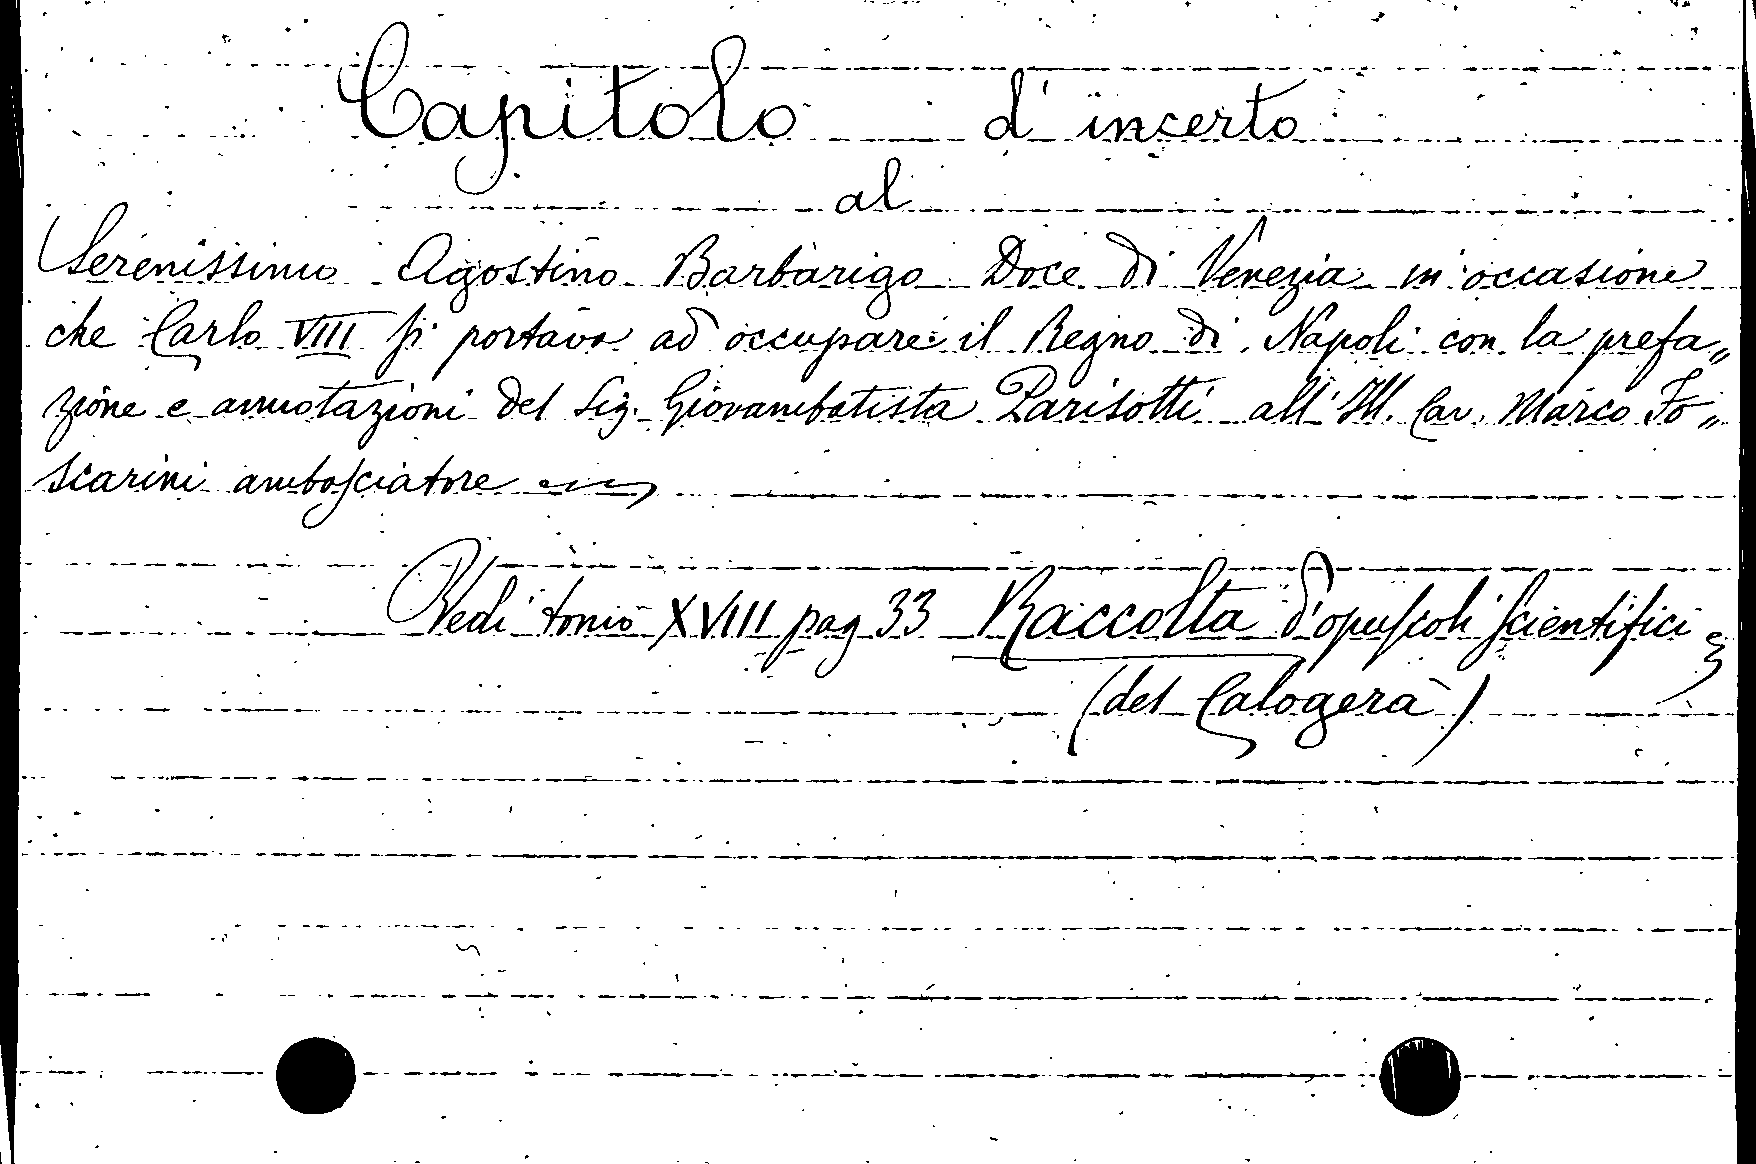 Capitolo d'incerto
al
Serenissimo Agostino Barbarigo Doce di Venezia in occasione
che Carlo VIII si portava ad occupare il Regno di Napoli con la prefa„
zione e annotazioni del Sig. Giovambatista Parisotti all' Ill. Cav. Marco Fo„
scarini ambasciatore
Vedi tomo XVIII pag 33 Raccolta d'opuscoli scientifici
(del Calogerà)